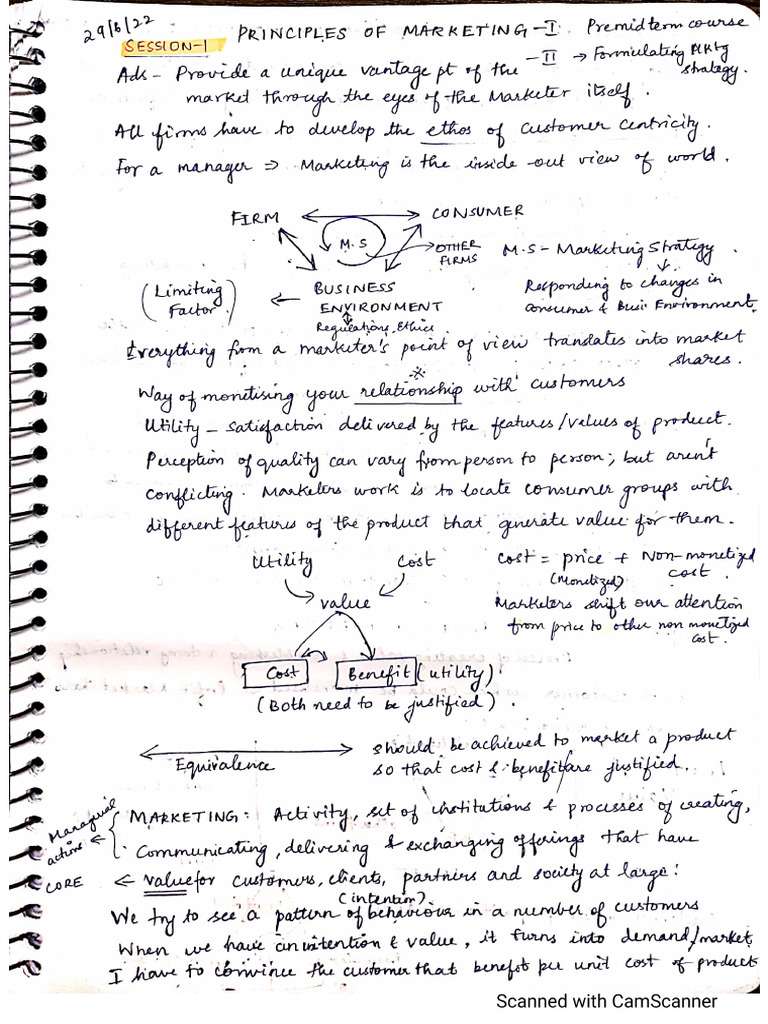 29/8/22
SESSION-1
PRINCIPLES OF MARKETING -I Premidterm course
-II → Formulating Mktg strategy.
Ads - Provide a unique vantage pt of the
market through the eyes of the Marketer itself.
All firms have to develop the ethos of customer centricity.
For a manager ⇒ Marketing is the inside-out view of world.
FIRM ↔ CONSUMER
M.S → OTHER FIRMS
M.S - Marketing Strategy.
↓
Responding to changes in
consumer & Busi Environment.
(Limiting Factor) ← BUSINESS ENVIRONMENT
Regulations, Ethics
Everything from a marketer's point of view translates into market
shares.
Way of monetising your relationship with customers
Utility - Satisfaction delivered by the features/values of product.
Perception of quality can vary from person to person; but aren't
conflicting. Marketers work is to locate consumer groups with
different features of the product that generate value for them.
Utility Cost
value
Cost = price + Non-monetized cost
(Monetized)
Marketers shift our attention
from price to other non monetized
cost.
Cost Benefit (Utility)
(Both need to be justified).
Equivalence
should be achieved to market a product
so that cost & benefit are justified.
Managerial actions ←
MARKETING: Activity, set of institutions & processes of creating,
Communicating, delivering & exchanging offerings that have
CORE ← value for customers, clients, partners and society at large:
(intention)
We try to see a pattern of behaviour in a number of customers
When we have an intention & value, it turns into demand/market
I have to convince the customer that benefit per unit cost of products
Scanned with CamScanner